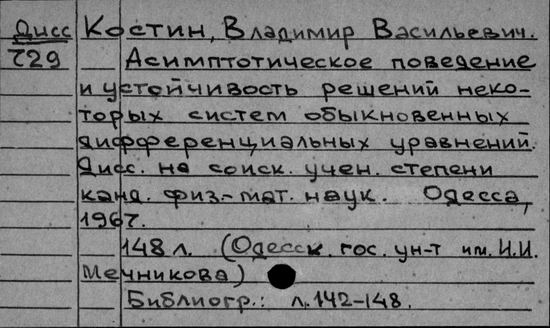 Дисс Костин, Владимир Васильевич.
729 Асимптотическое поведение
и устойчивость решений неко-
торых систем обыкновенных
дифференциальных уравнений.
Дисс. на соиск. учен. степени
канд. физ-мат. наук. Одесса,
1967.
148 л. (Одесск. гос. ун-т им. И.И.
Мечникова)
Библиогр.: л.142-148.